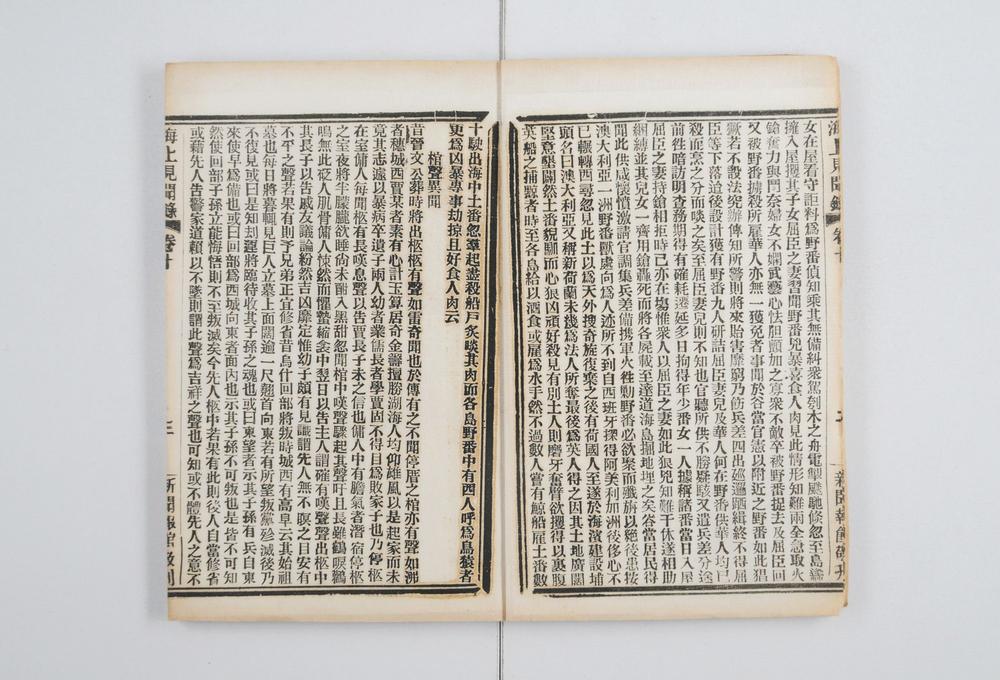 海上見聞錄 卷十 新聞報館敬刊
女在屋看守詎料爲野番偵知乘其無備糾衆駕刳木之舟電掣飈馳倐忽至島蠭
擁入屋攫其子女屈臣之妻習聞野番兇暴喜食人肉見此情形知難兩全急取火
鎗奮力與鬥奈婦女不嫻武藝心怯胆顫加之寡衆不敵卒被野番捉去及屈臣回
又被野番擄殺所雇華人亦無一獲免者事聞於谷當官憲以附近之野番如此猖
獗若不設法究辦傳知所警則將來貽害靡窮乃飭兵差四出巡邏緝終不得屈
臣等下落迨後設計獲有野番九人研詰屈臣妻兒及華人何在野番供華人均已
殺而烹之分而啖之矣至屈臣妻兒則不知也官聽所供不勝駭又遣兵差分途
前往暗訪明查務期得有確耗遷延多日拘得年少番女一人據稱諸番當日入屋
屈臣之妻持鎗相拒時己亦在塲惟衆人以屈臣之妻如此狼兇知難干休遂相助
綑縛並其兒女一齊用鎗轟死而將各屍載至達道海島掘地埋之矣谷當居民得
聞此供咸懷憤激請官調集兵差備携軍火往勦野番必欲聚而殲旃以絶後患按
澳大利亞一洲野番厭處向爲人迹所不到自西班牙探得阿美利加洲後侈心不
已輾轉西尋忽見此土以爲天外搜奇旋復棄之後有荷國人至遂於海濱建設埔
頭名曰澳大利亞又稱新荷蘭未幾爲法人所奪最後爲英人得之因其土地廣闊
堅意墾闢然土番貌黝而心狠凶頑好殺見有別土人則磨牙奮臂欲攫得以裹腹
英船之捕鯨者時至各島給以酒食或雇爲水手然不過數人嘗有鯨船雇土番數
十駛出海中土番忽羣起盡殺船戶炙啖其肉而各島野番中有西人呼爲島猿者
更爲凶暴專事劫掠且好食人肉云
棺聲異聞
昔晉文公葬時將出柩柩有聲如雷奇聞也於傳有之不聞停厝之棺亦有聲如沸
者穗城西賈某者素有心計玉算居奇金籌擅勝湖海人均仰雄風以是起家而未
竟其志遽以暴病卒遺子兩人幼者業儒長者學賈固不得目爲敗家子也乃停柩
在室傭人每聞柩有長嘆息聲以告賈長子未之信也傭人中有膽氣者潛宿停柩
之室夜將半朦朧欲睡尙未酣入黑甜忽聞棺中嘆聲驟起其聲吁且長雖鶴唳鸛
鳴無此砭人肌骨傭人悚然而懼蟄縮衾中翌日以告主人謂確有嘆聲聲出柩中
其長子以告戚友議論紛然吉凶靡定惟幼子頗有見識謂先人無不瞑之目安有
不平之聲若果有則予兄弟正宜修省昔烏什回部將叛時城西有高阜云其始祖
墓也每日將暮輒見巨人立墓上面闊逾一尺翹首向東若有所望叛孽殄滅後乃
不復見或曰是知刦運將臨待收其子孫之魂也或曰東望者示其子孫有兵自東
來使早爲備也或曰回部爲西域向東者面內也示其子孫不可叛也是皆不可知
然使回部子孫立能悔悟則不至叛滅矣今先人柩中若果有此則後人自當修省
或藉先人告警家道賴以不墜則謂此聲爲吉祥之聲也可知或不體先人之意不
海上見聞錄 卷十 三 新聞報館敬刊